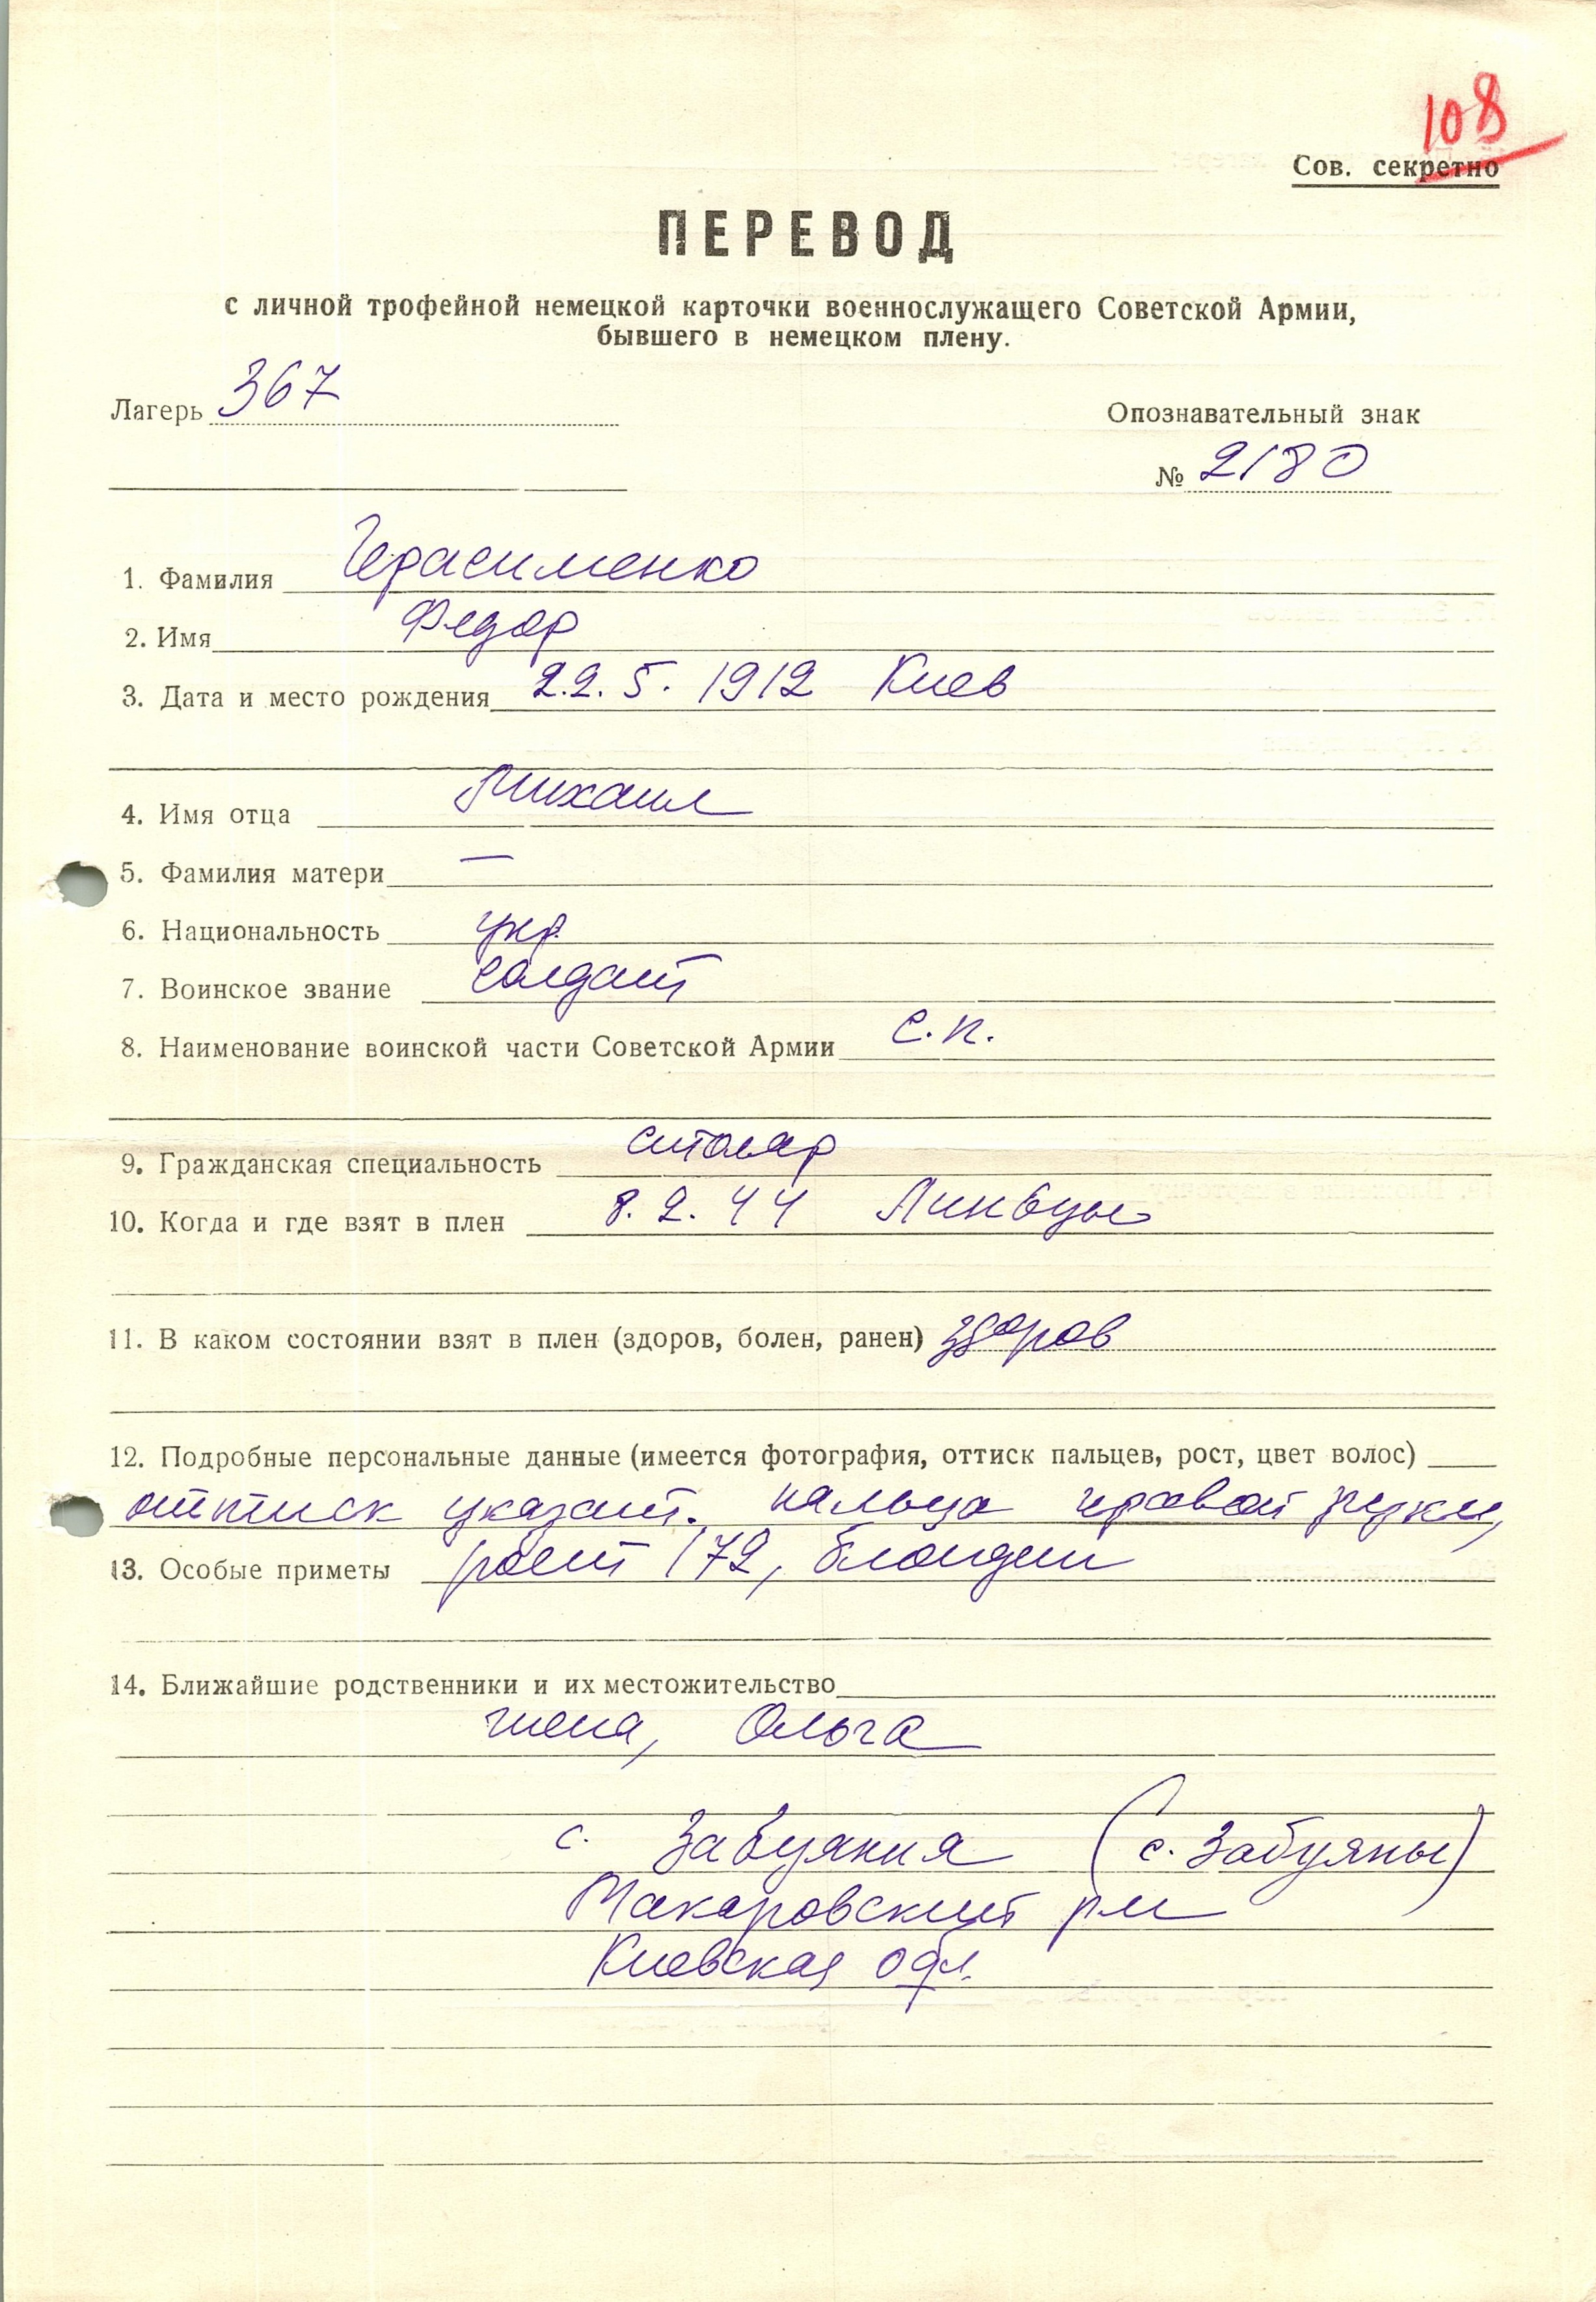 108
Сов. секретно
ПЕРЕВОД
с личной трофейной немецкой карточки военнослужащего Советской Армии,
бывшего в немецком плену.
Лагерь 367
Опознавательный знак
№ 2180
1. Фамилия Герасименко
2. Имя Федор
3. Дата и место рождения 22.5. 1912 Киев
4. Имя отца Михаил
5. Фамилия матери —
6. Национальность укр.
7. Воинское звание солдат
8. Наименование воинской части Советской Армии с.п.
9. Гражданская специальность столяр
10. Когда и где взят в плен 8.2.44 Линвцы
11. В каком состоянии взят в плен (здоров, болен, ранен) здоров
12. Подробные персональные данные (имеется фотография, оттиск пальцев, рост, цвет волос)
оттиск указат. пальца правой руки,
13. Особые приметы рост 172, блондин
14. Ближайшие родственники и их местожительство
жена, Ольга
с. Забуякия (с. Забуяны)
Макаровский р-н
Киевская обл.